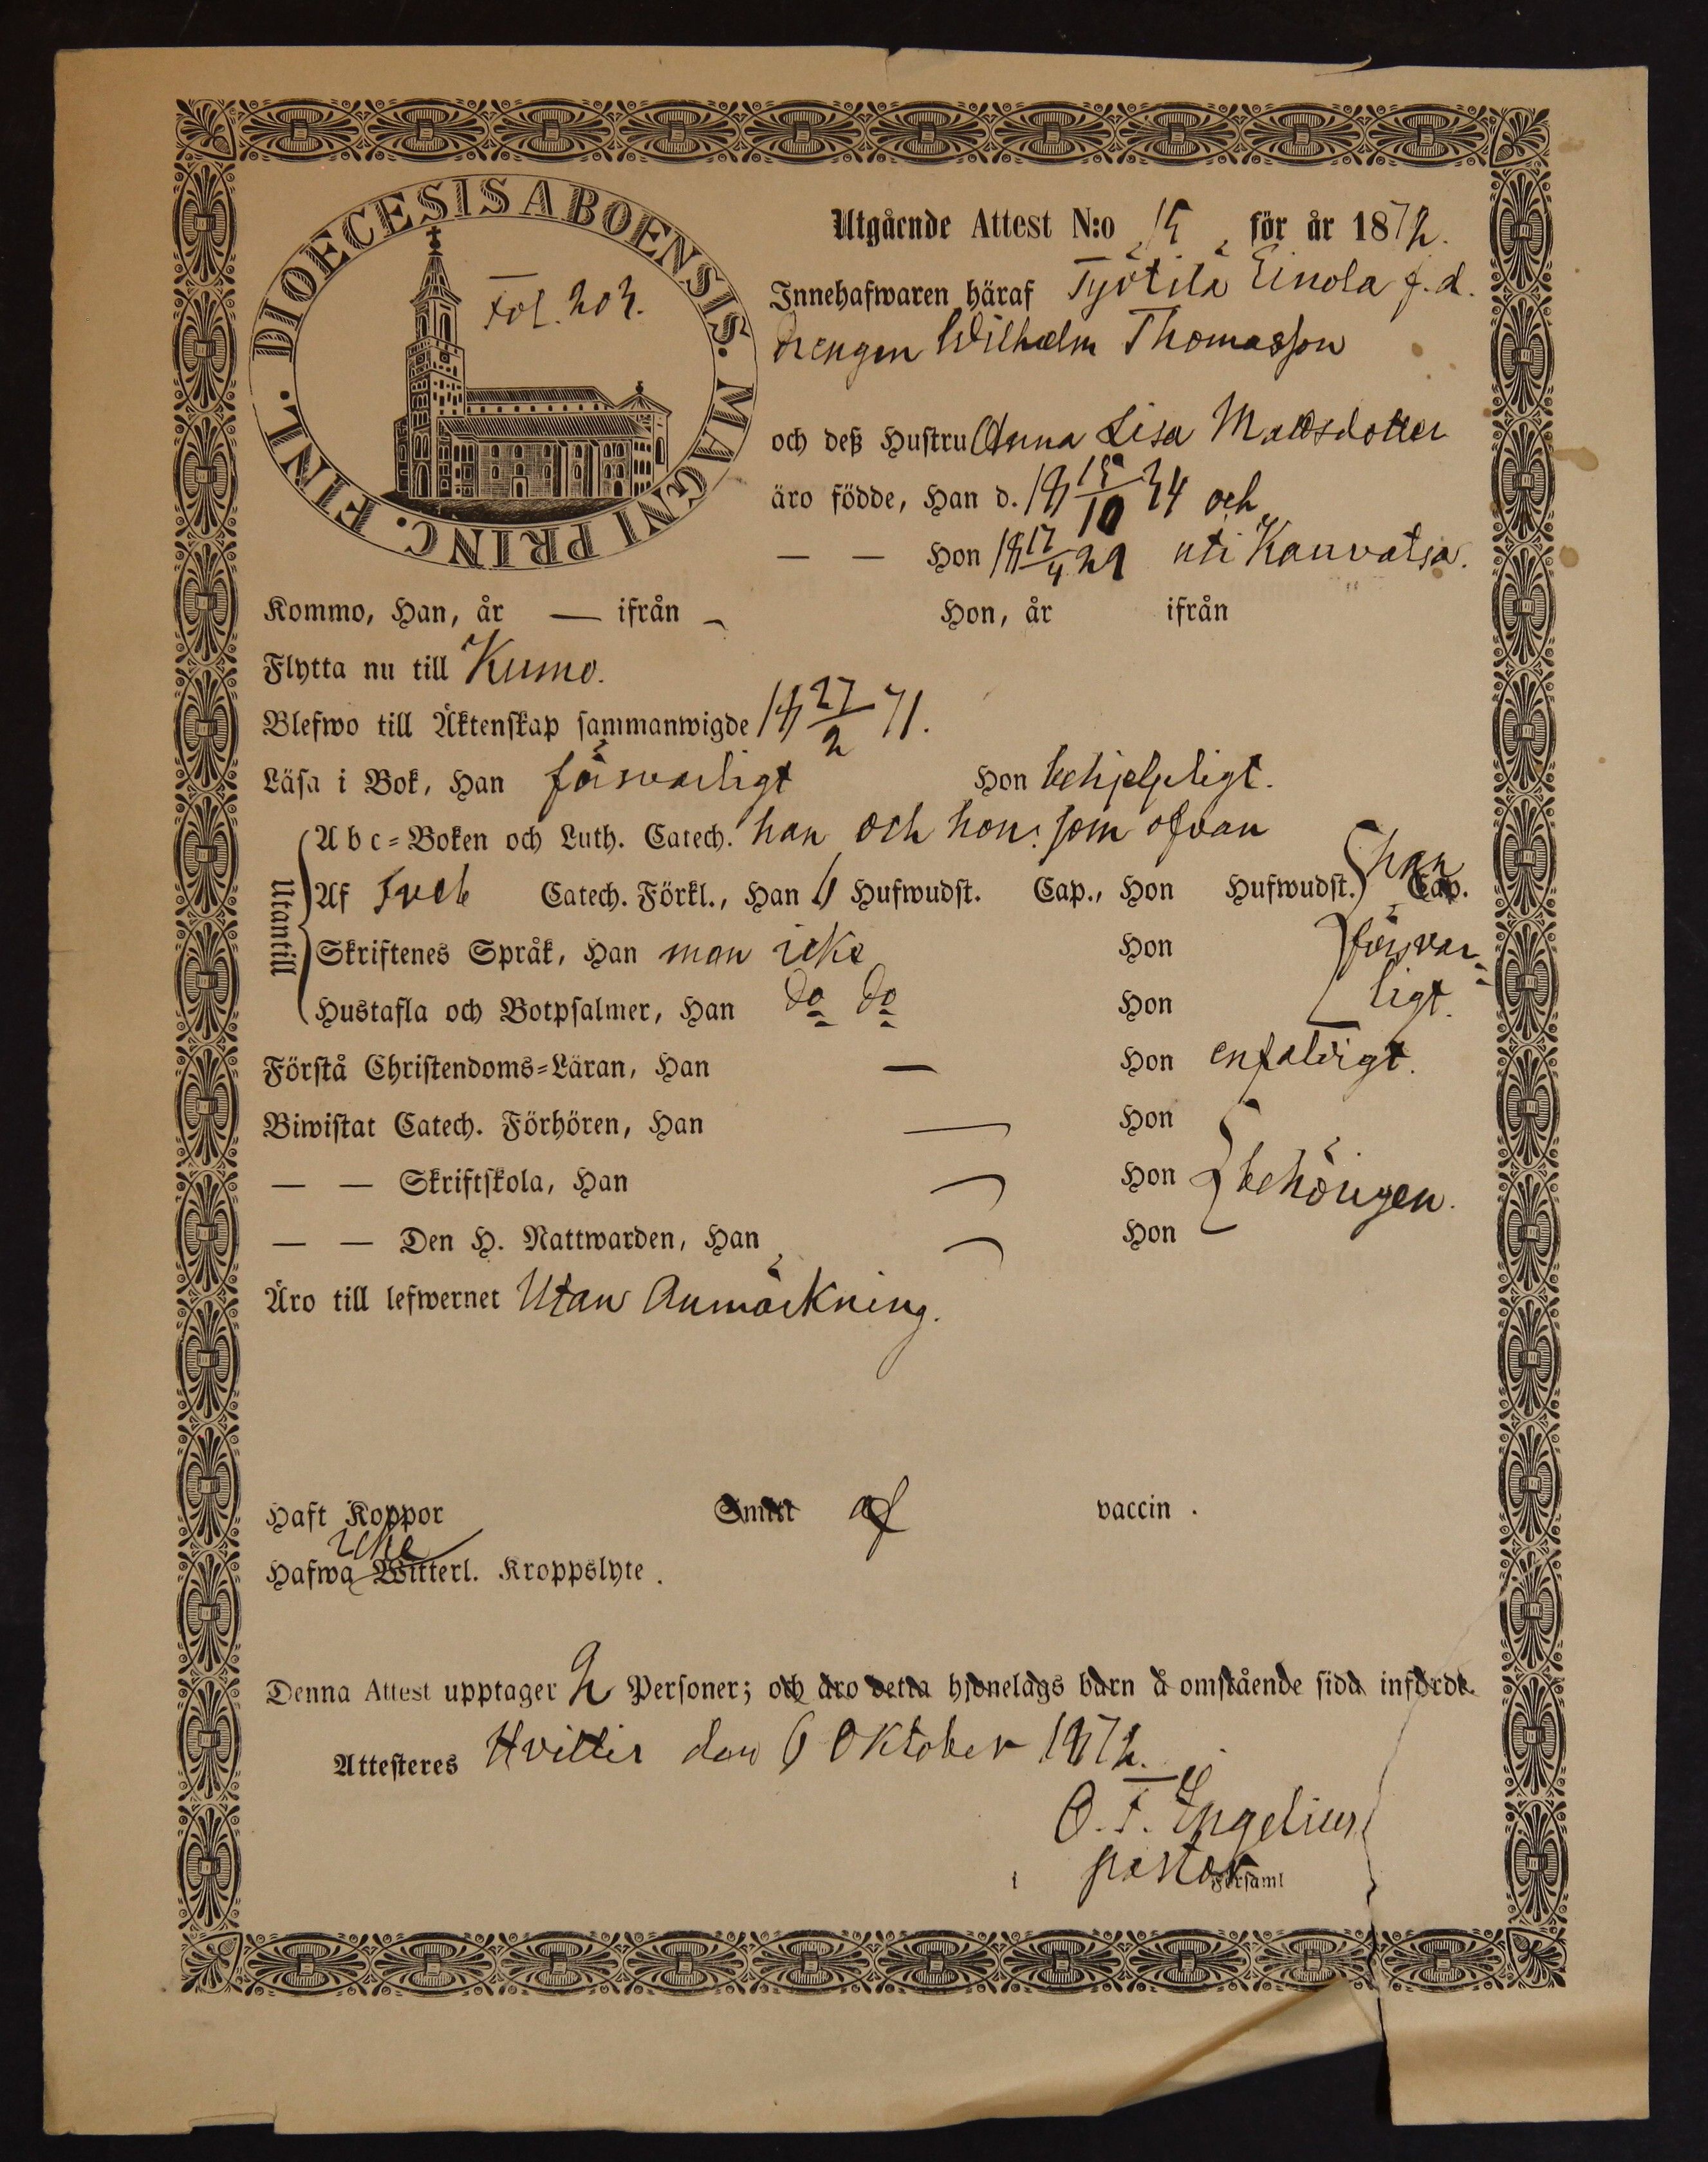 DIOECESIS ABOENSIS. MAGNI PRINC. FINL.
Fol. 203.
Utgående Attest N:o 15 för år 1872.
Innehafwaren häraf Työtilä Einola f.d.
drengen Wilhelm Thomasson
och deß Hustru Anna Lisa Mattsdotter
äro födde, Han d. 18 15/10 34 och
— — Hon 18 17/4 29 uti Kauvatsa.
Kommo, Han, år — ifrån – Hon, år ifrån
Flytta nu till Kumo.
Blefwo till Äktenskap sammanwigde 18 27/2 71.
Läsa i Bok, Han försvarligt Hon behjelpligt.
Utantill
Abc-Boken och Luth. Catech. han och hon: som ofvan
Af Sveb Catech. Förkl., Han 6 Hufwudst. Cap., Hon Hufwudst. Cap.
Skriftenes Språk, Han man icke Hon försvar-
Hustafla och Botpsalmer, Han do do Hon ligt.
Förstå Christendoms-Läran, Han — Hon enfaldigt.
Biwistat Catech. Förhören, Han — Hon
— — Skriftskola, Han — Hon behörigen.
— — Den H. Nattwarden, Han — Hon
Äro till lefwernet Utan Anmärkning.
Haft Koppor Smitt af vaccin.
Hafwa icke Witterl. Kroppslyte.
Denna Attest upptager 2 Personer; och äro detta hjonelags barn å omstående sida införde.
Attesteres Hvittis den 6 Oktober 1872.
O. F. Engelius
pastor
i Församl